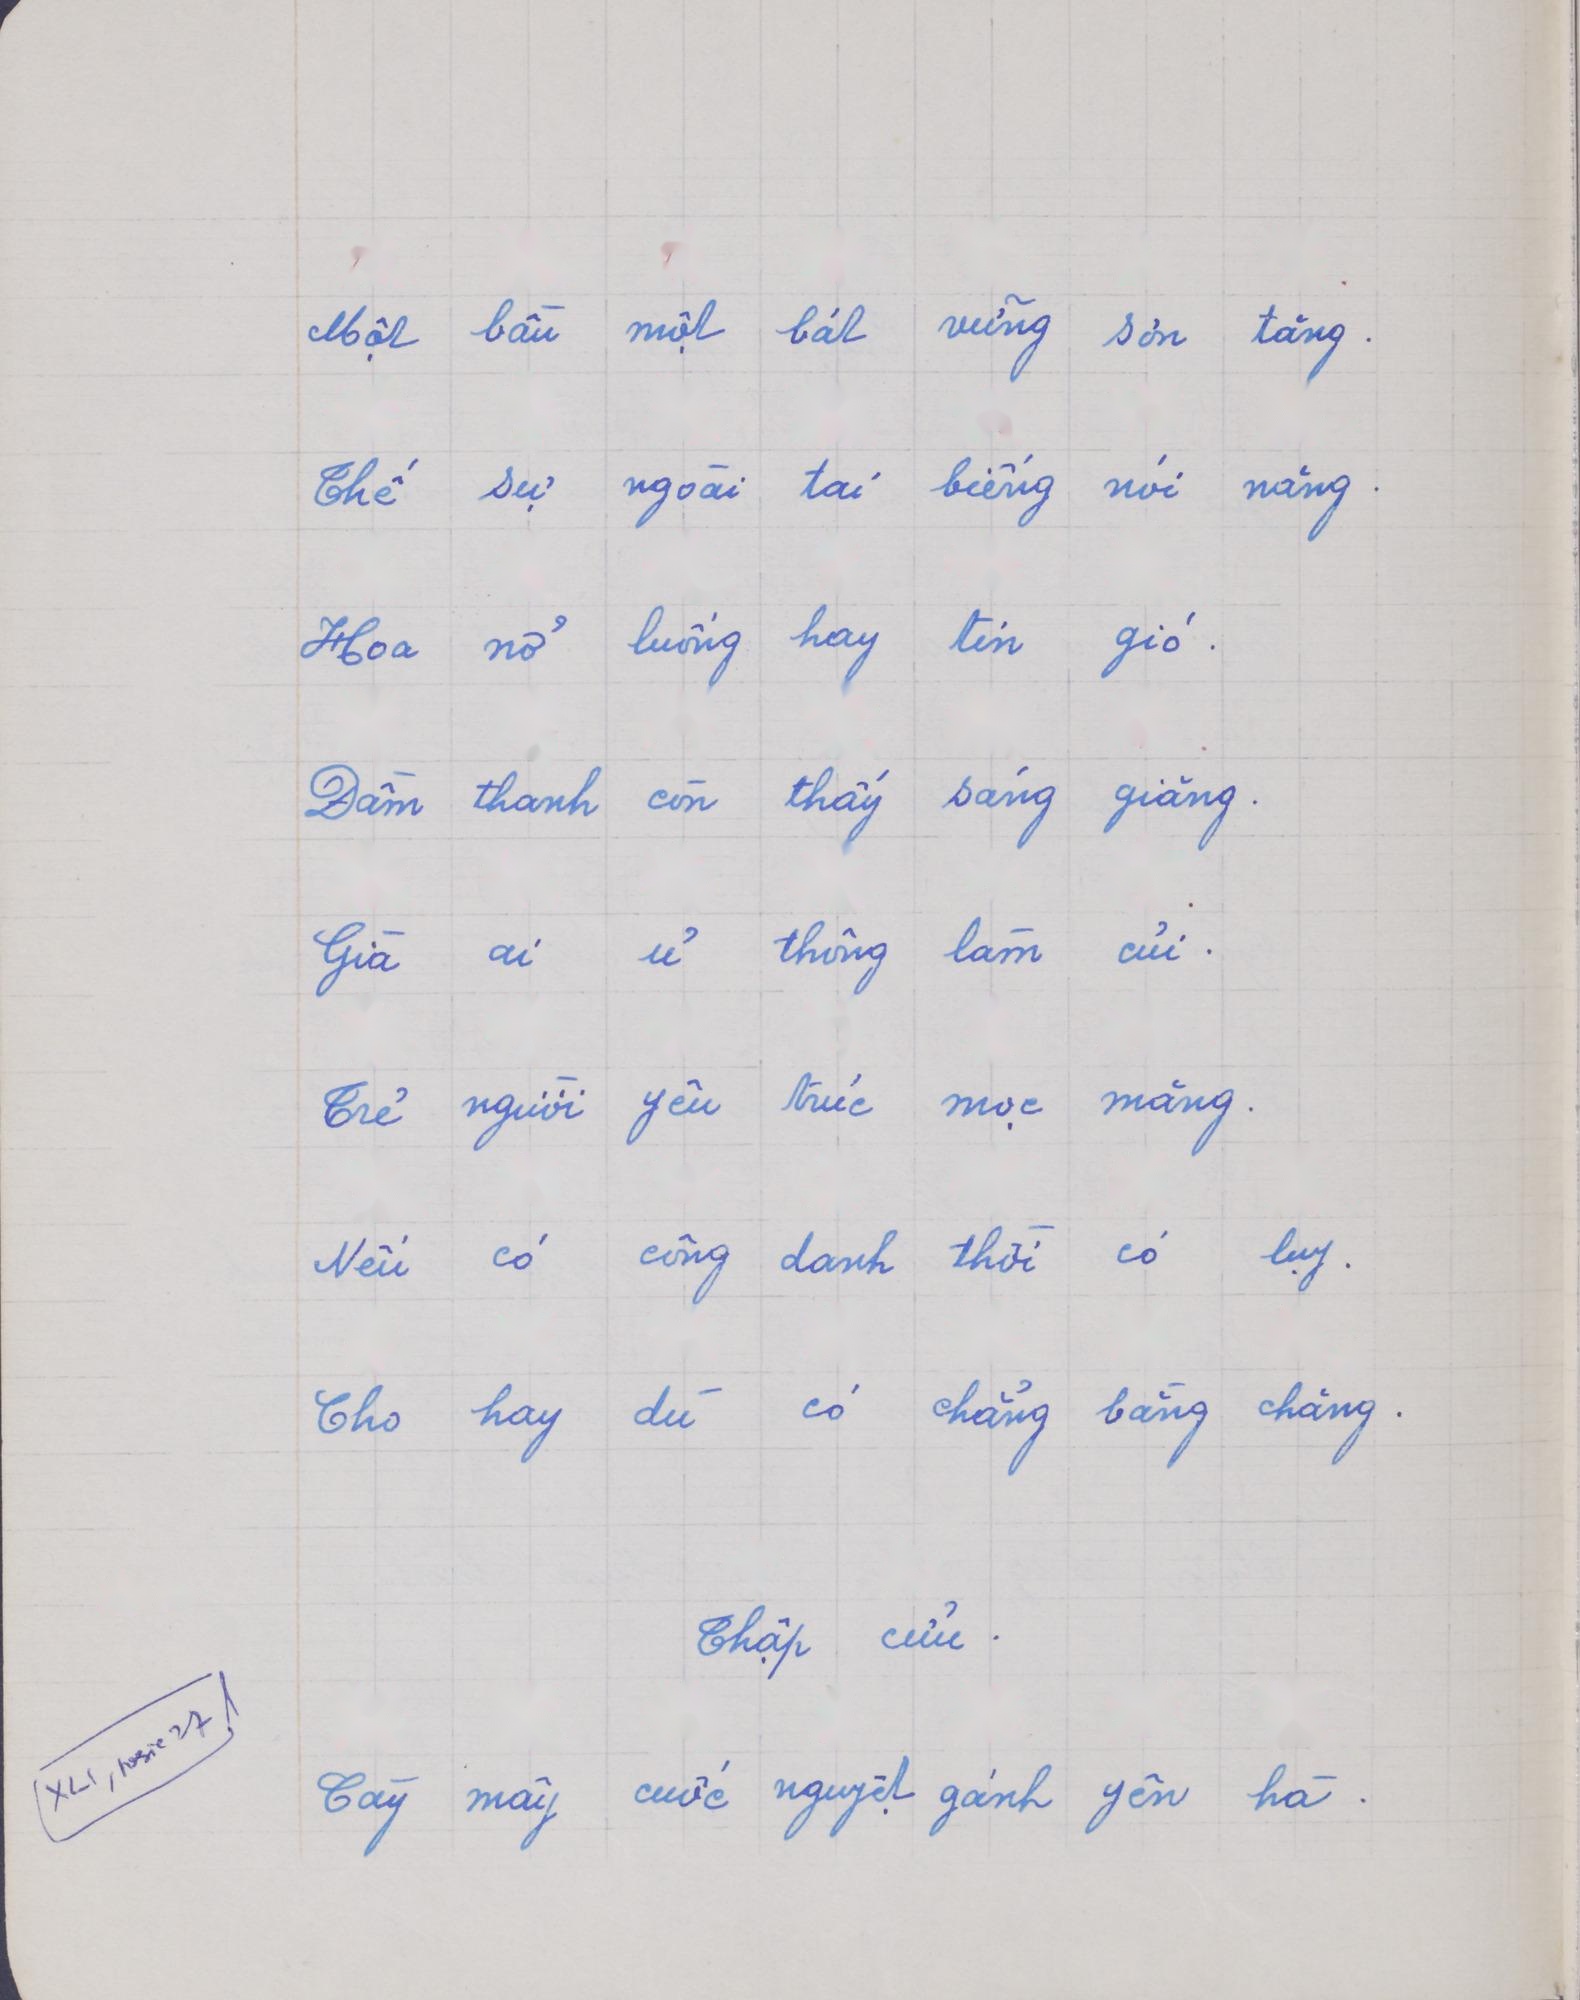 Một bầu một bát vững sơn tăng.
Thế sự ngoài tai biếng nói năng.
Hoa nở luống hay tin gió.
Đầm thanh còn thấy sáng giăng.
Già ai ử thông làm củi.
Trẻ người yêu trúc mọc măng.
Nếu có công danh thời có lụy.
Cho hay dù có chẳng bằng chăng.
Thập cửu.
XLI,
Cày mây cuốc nguyệt gánh yên hà.